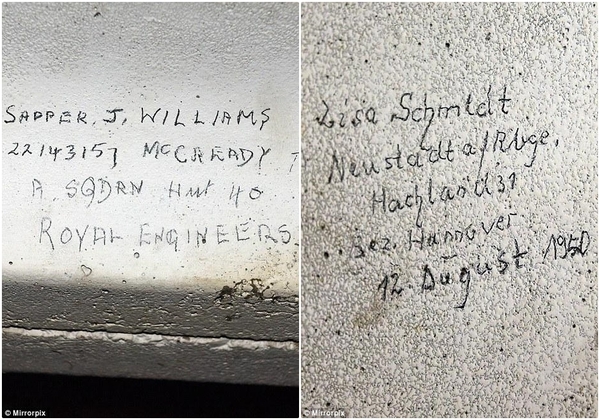 SAPPER. J. WILLIAMS
22143157 MCCREADY T
A. SQDRN Hut 40
ROYAL ENGINEERS.
© Mirrorpix
Lisa Schmidt
Neustadt a/Rbge.
Hachland 31
Bez. Hannover
12. August 1950
© Mirrorpix